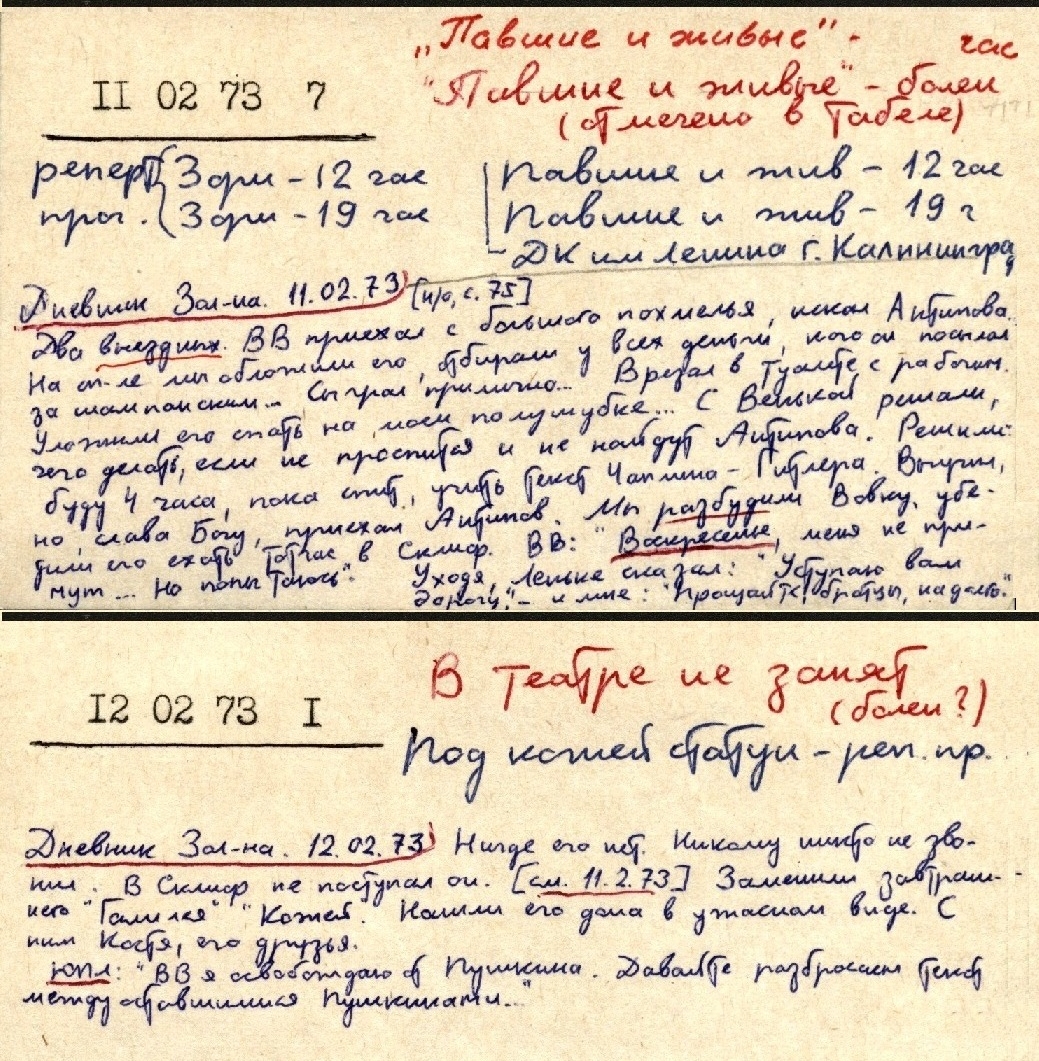 „Павшие и живые" - час
II 02 73 7
"Павшие и живые" - болен
(отмечено в табеле)
реперт { Зори - 12 час
прог. { Зори - 19 час
Павшие и жив - 12 час
Павшие и жив - 19 ч
ДК им Ленина г. Калининград
Дневник Зол-на. 11.02.73 [н/о, с. 75]
Два выездных. ВВ приехал с большого похмелья, искал Антипова.
На сп-ле мы обложили его, отбирали у всех деньги, кого он посылал
за шампанским... Сыграл прилично... Врезал в туалете с рабочим.
Уложили его спать на моем полушубке... С Венькой решали,
чего делать, если не проспится и не найдут Антипова. Решили:
буду 4 часа, пока спит, учить текст Чаплина - Гитлера. Выучил,
но, слава Богу, приехал Антипов. Мы разбудили Вовку, убе-
дили его ехать тотчас в Склиф. ВВ: "Воскресенье, меня не при-
мут... Но попытаюсь". Уходя, Леньке сказал: "Уступаю вам
дорогу." - и мне: "Прощайте, братцы, надолго."
I2 02 73 I
В театре не занят
(болен?)
Под кожей статуи - реп. пр.
Дневник Зол-на. 12.02.73 Нигде его нет. Никому никто не зво-
нил. В Склиф не поступал он. [см. 11.2.73] Заменили завтраш-
него "Галилея" "Кожей". Нашли его дома в ужасном виде. С
ним Костя, его друзья.
ЮПЛ: "ВВ я освобождаю от Пушкина. Давайте разбросаем текст
между оставшимися Пушкиными..."